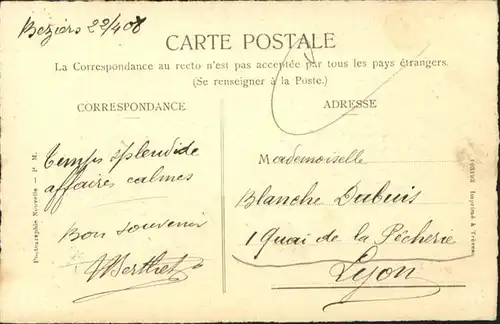 Béziers 22/4 08
CARTE POSTALE
La Correspondance au recto n'est pas acceptée par tous les pays étrangers.
(Se renseigner à la Poste.)
CORRESPONDANCE
Temps splendide
affaires calmes
Bon souvenir
Berthet
Photographie Nouvelle — P. M.
ADRESSE
Mademoiselle
Blanche Dubuis
1 Quai de la Pêcherie
Lyon
Imprimé à Trèves